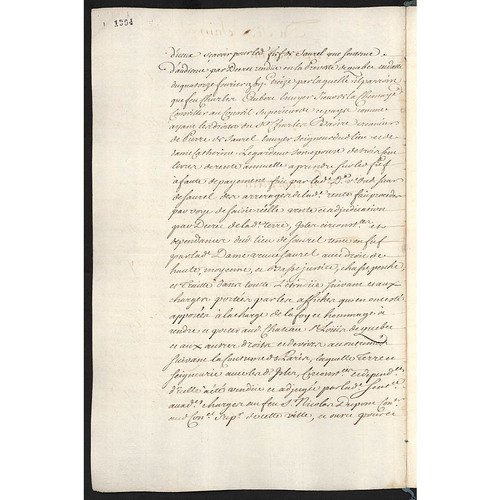 1394
d'ieux scavoir pour led. fief de Saurel une sentence
d'audience par Decret rendue en la Prevosté de quebec en datte
du quatorze fevrier par laquelle il paroit
que feu Charles Aubert Ecuyer Sieur de la Chenaye
Conseiller au Conseil Superieur de ce pays comme
ayant les droits du Sr Charles Bazire creancier
de Pierre de Saurel Ecuyer Seigneur dud. lieu et de
dame Catherine Legardeur son epouse de trois cens
livres de rente annuelle a prendre sur led. fief
a faute de payement fait par lad. De veuve dud. Sieur
de Saurel des arrerages de lad. rente fait proceder
par voye de saisie réelle vente et adjudication
par Decret de lad. terre, Isles circonstces et
dependances dud. lieu de Saurel tenu en fief
par lad. Dame veuve Saurel avec droit de
haute, moyenne, et Basse justice, chasse, pesche,
et Traitte dans toute L'etendue suivant et aux
charges portées par les affiches qui en ont esté
apposées à la charge de la foy et hommage a
rendre et porter aud. Chateau St Loüis de quebec
et aux autres droits et devoirs accoutumés
suivant la Coutume de Paris, laquelle Terre et
Seigneurie avec les d. Isles, Circonstces et dependces
d'icelle a été vendue et adjugée par lad. Sentce
auxd. charges au feu Sr Nicolas Dupont Coner
aud. Conel Supr de cette ville, et ouvré pour ce